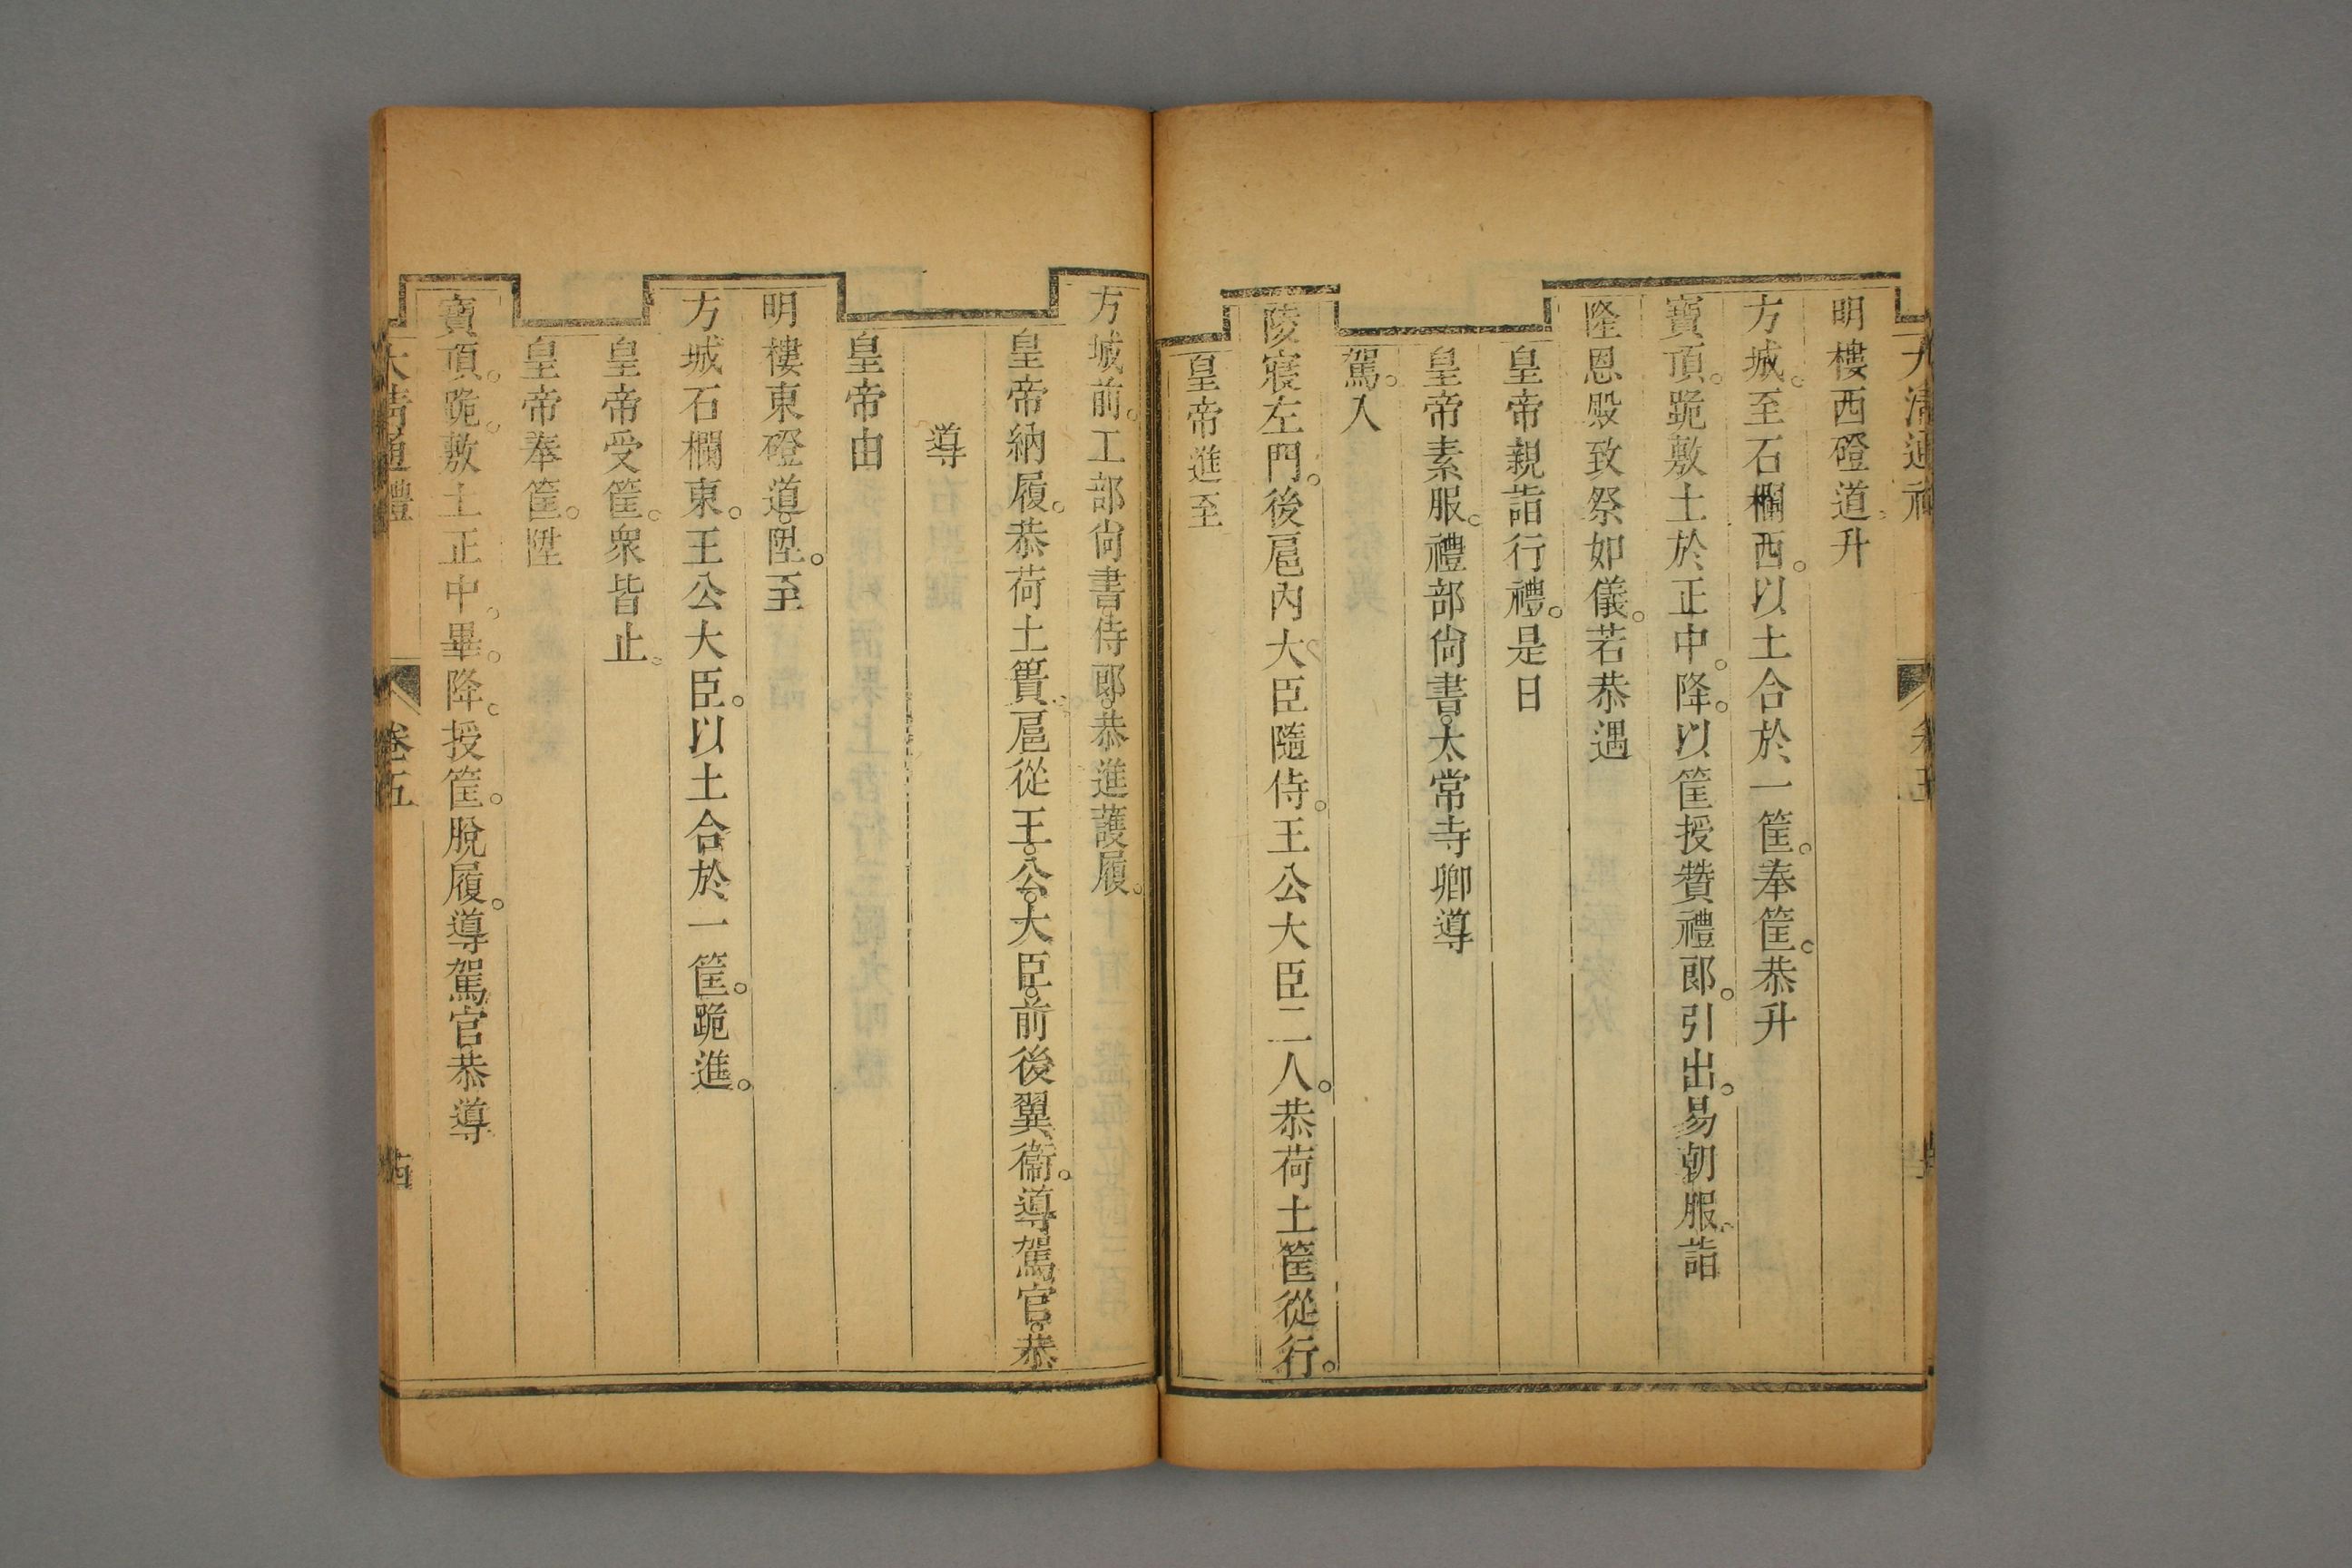 明樓西磴道。升
方城。至石欄西。以土合於一筐。奉筐。恭升
寶頂。跪敷土於正中。降。以筐授贊禮郎。引出。易朝服。詣
隆恩殿致祭如儀。若恭遇
皇帝親詣行禮。是日
皇帝素服。禮部尙書。太常寺卿導
駕。入
陵寢左門。後扈內大臣隨侍。王公大臣二人。恭荷土筐從行。
皇帝進至
方城前。工部尙書。侍郎。恭進護履。
皇帝納履。恭荷土簣。扈從王。公。大臣。前後翼衞。導駕官。恭
導
皇帝由
明樓東磴道。陞。至
方城石欄東。王公大臣。以土合於一筐。跪進。
皇帝受筐。衆皆止。
皇帝奉筐。陞
寶頂。跪。敷土正中。畢。降。授筐。脫履。導駕官恭導
大清通禮 卷五